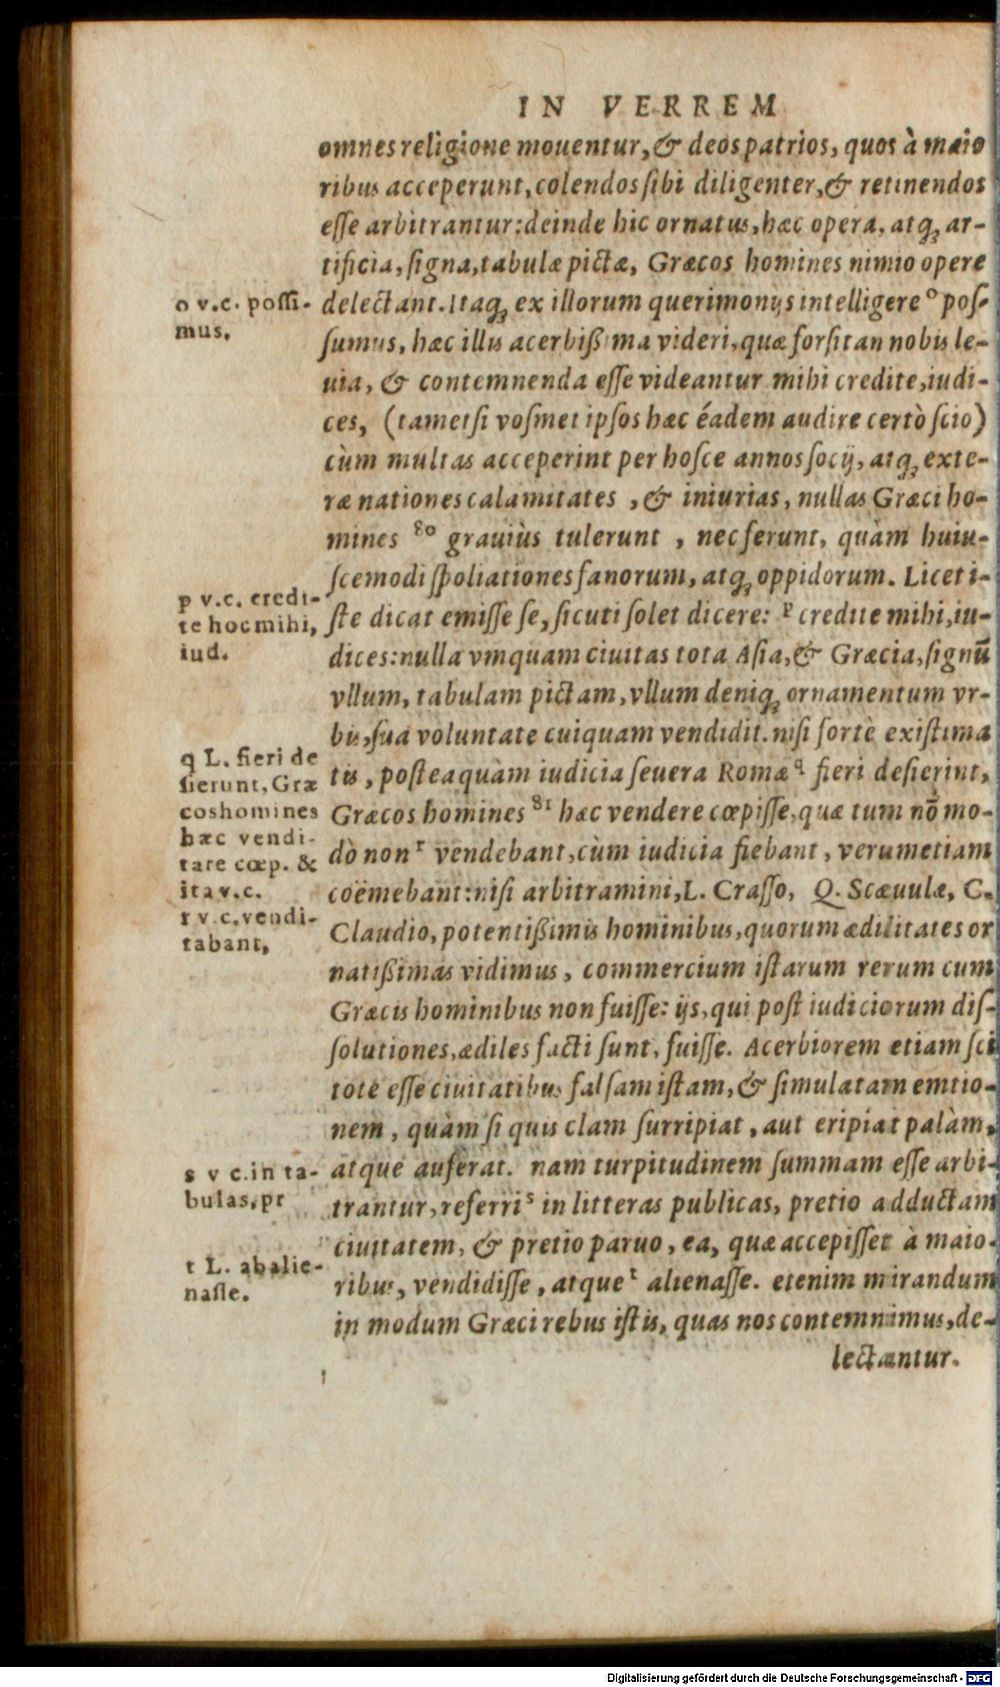 IN VERREM
omnes religione mouentur, & deos patrios, quos à maio
ribus acceperunt, colendos ſibi diligenter, & retinendos
eſſe arbitrantur: deinde hic ornatus, hæc opera, atq; ar-
tificia, ſigna, tabulæ pictæ, Græcos homines nimio opere
delectant. Itaq; ex illorum querimonijs intelligere o poſ-
ſumus, hæc illis acerbißima videri, quæ forſitan nobis le-
uia, & contemnenda eſſe videantur mihi credite, iudi-
ces, (tametſi voſmet ipſos hæc éadem audire certò ſcio)
cùm multas acceperint per hoſce annos ſocij, atq; exte-
ræ nationes calamitates, & iniurias, nullas Græci ho-
mines 80 grauiùs tulerunt, nec ferunt, quàm huiu-
ſcemodi ſpoliationes fanorum, atq; oppidorum. Licet i-
ſte dicat emiſſe ſe, ſicuti ſolet dicere: p credite mihi, iu-
dices: nulla vmquam ciuitas tota Aſia, & Græcia, ſignũ
vllum, tabulam pictam, vllum deniq; ornamentum vr-
bis, ſua voluntate cuiquam vendidit. niſi fortè exiſtima
tis, poſteaquàm iudicia ſeuera Romæ q fieri deſierint,
Græcos homines 81 hæc vendere cœpiſſe, quæ tum nõ mo-
dò non r vendebant, cùm iudicia fiebant, verumetiam
coëmebant: niſi arbitramini, L. Craſſo, Q. Scæuulæ, C.
Claudio, potentißimis hominibus, quorum ædilitates or
natißimas vidimus, commercium iſtarum rerum cum
Græcis hominibus non fuiſſe: ijs, qui poſt iudiciorum diſ-
ſolutiones, ædiles facti ſunt, fuiſſe. Acerbiorem etiam ſci
tote eſſe ciuitatibus falſam iſtam, & ſimulatam emtio-
nem, quàm ſi quis clam ſurripiat, aut eripiat palàm,
atque auferat. nam turpitudinem ſummam eſſe arbi-
trantur, referri s in litteras publicas, pretio adductam
ciuitatem, & pretio paruo, ea, quæ accepiſſet à maio-
ribus, vendidiſſe, atque t alienaſſe. etenim mirandum
in modum Græci rebus iſtis, quas nos contemnimus, de-
lectantur.
o v.c. poſſi-
mus.
p v.c. credi-
te hoc mihi,
iud.
q L. fieri de
ſierunt, Græ
cos homines
hæc vendi-
tare cœp. &
ita v.c.
r v.c. vendi-
tabant,
s v c. in ta-
bulas, pr
t L. abalie-
naſſe.
Digitalisierung gefördert durch die Deutsche Forschungsgemeinschaft - DFG